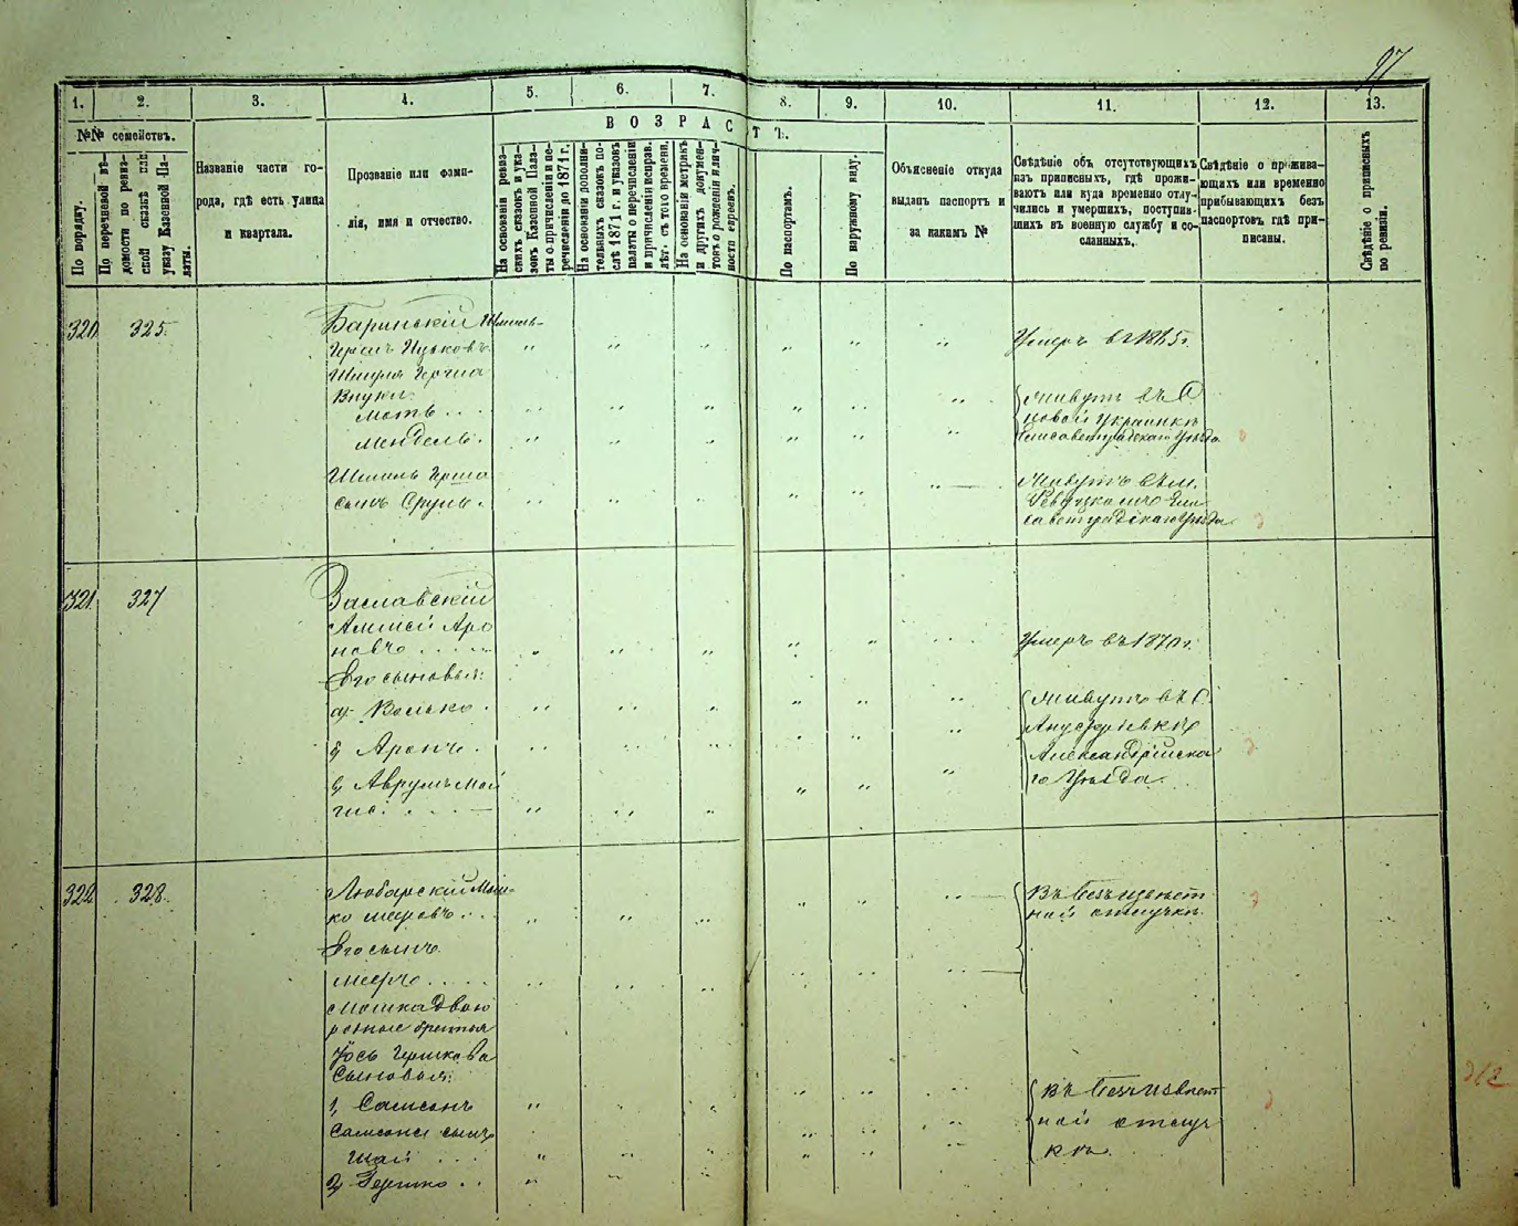 97
1. 2. 3. 4. 5. 6. 7. 8. 9. 10. 11. 12. 13.
№№ семействъ.
По порядку.
По перечневой вѣ-
домости по ревиз-
ской сказкѣ или
указу Казенной Па-
латы.
Названіе части го-
рода, гдѣ есть улица
и квартала.
Прозваніе или фами-
лія, имя и отчество.
ВОЗРАСТЪ.
На основаніи ревиз-
скихъ сказокъ и ука-
зовъ Казенной Пала-
ты о причисленіи и пе-
речисленіи до 1871 г.
На основаніи дополни-
тельныхъ сказокъ по-
слѣ 1871 г. и указовъ
палаты о перечисленіи
и причисленіи исправ.
лѣт. съ того времени.
На основаніи метрикъ
и другихъ докумен-
товъ о рожденіи и лич-
ности евреевъ.
По паспортамъ.
По наружному виду.
Объясненіе откуда
выданъ паспортъ и
за какимъ №
Свѣдѣніе объ отсутствующихъ
изъ приписныхъ, гдѣ прожи-
ваютъ или куда временно отлу-
чились и умершихъ, поступив-
шихъ въ военную службу и со-
сланныхъ.
Свѣдѣніе о прожива-
ющихъ или временно
прибывающихъ безъ
паспортовъ гдѣ при-
писаны.
Свѣдѣніе о приписныхъ
по ревизіи.
320 325.
Внуки:
Мендель.
сынъ Сруль.
Умеръ въ 1865 г.
Живутъ въ С.
Новой Украинкѣ
Елисаветградскаго Уѣзда
Живутъ въ м.
Ели-
саветградскаго Уѣзда
321. 327
Заславскій
Аро
новъ
Его сыновья:
а, Волько.
б, Аронъ.
в, Аврумъ Мой
ше.
Умеръ въ 1870 г.
Живутъ въ С.
Александрійска
го Уѣзда.
322 328.
Любарскій Мош-
ко Мееровъ
Его сынъ
Мееръ
Мошка Двою
родные братья
Іось Гершкова
Сыновья:
1, Самсонъ
Самсона сынъ
Шай
2, Гершко
Въ безъизвѣст
ной отлучкѣ.
Въ безъизвѣст
ной отлуч
кѣ.